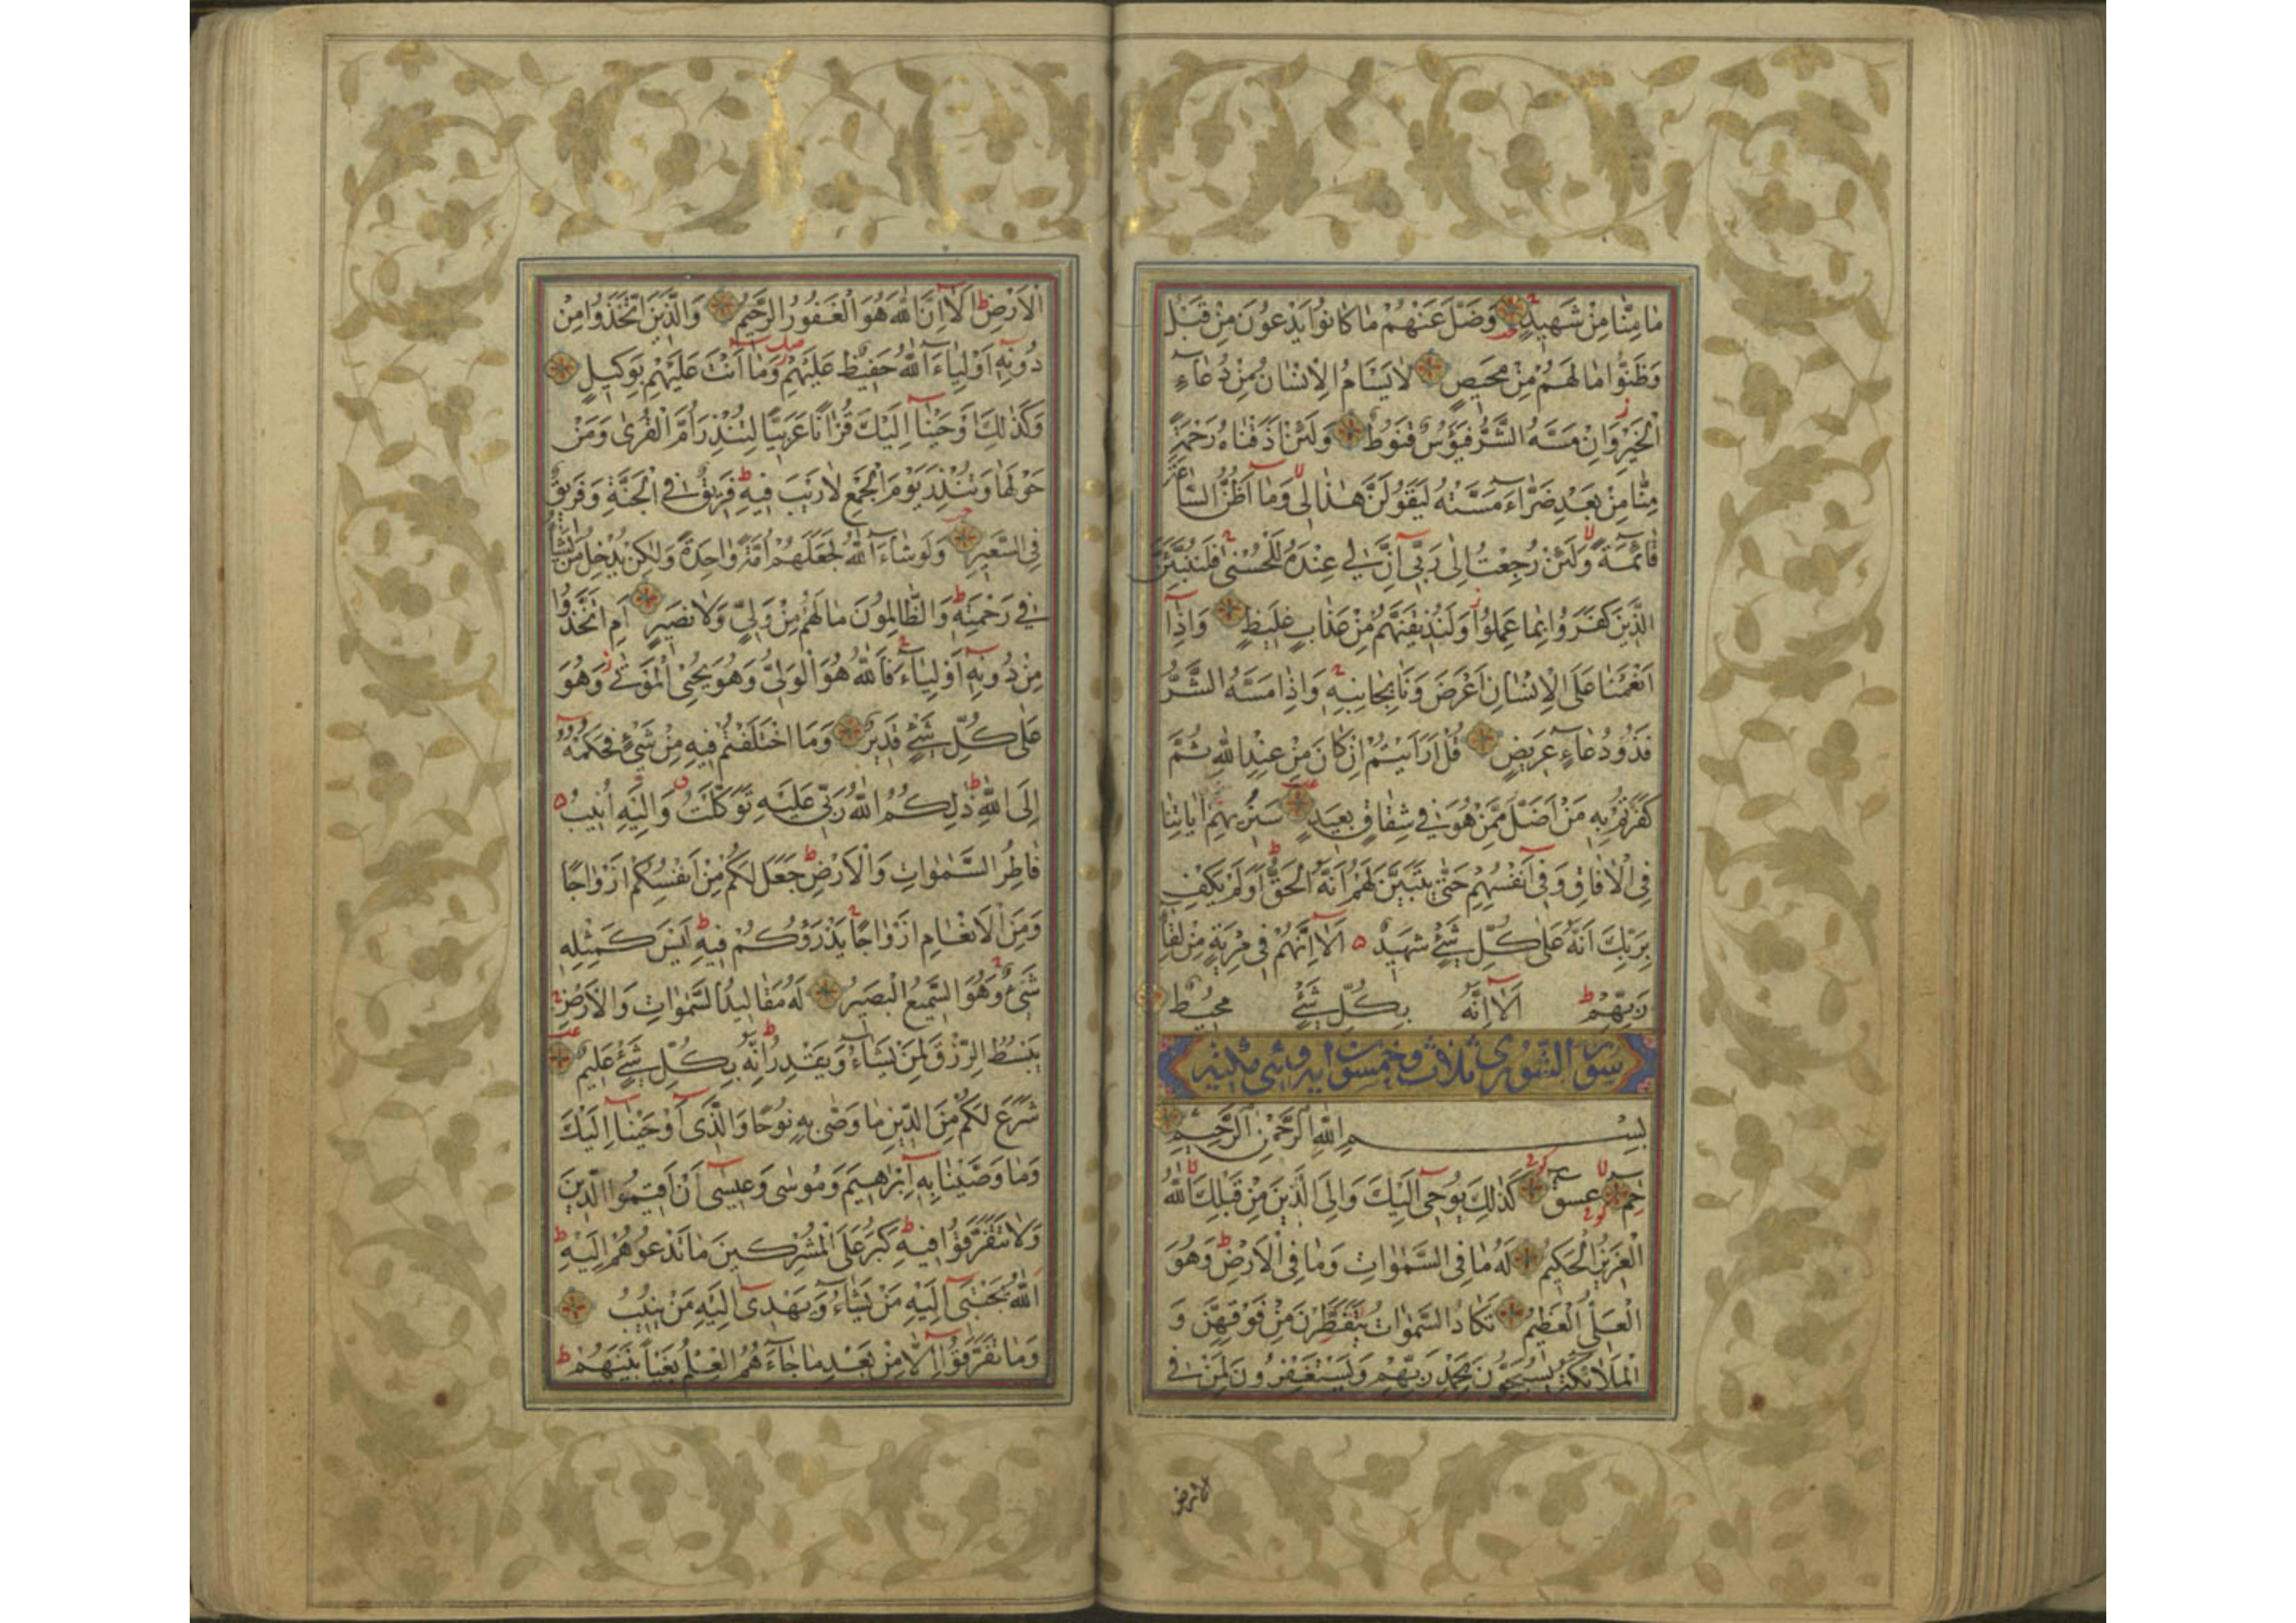 مَا مِنَّا مِنْ شَهِيدٍ وَضَلَّ عَنْهُمْ مَا كَانُوا يَدْعُونَ مِنْ قَبْلُ
وَظَنُّوا مَا لَهُمْ مِنْ مَحِيصٍ لَا يَسْأَمُ الْإِنْسَانُ مِنْ دُعَاءِ
الْخَيْرِ وَإِنْ مَسَّهُ الشَّرُّ فَيَؤُسٌ قَنُوطٌ وَلَئِنْ أَذَقْنَاهُ رَحْمَةً
مِنَّا مِنْ بَعْدِ ضَرَّاءَ مَسَّتْهُ لَيَقُولَنَّ هَذَا لِي وَمَا أَظُنُّ السَّاعَةَ
قَائِمَةً وَلَئِنْ رُجِعْتُ إِلَى رَبِّي إِنَّ لِي عِنْدَهُ لَلْحُسْنَى فَلَنُنَبِّئَنَّ
الَّذِينَ كَفَرُوا بِمَا عَمِلُوا وَلَنُذِيقَنَّهُمْ مِنْ عَذَابٍ غَلِيظٍ وَإِذَا
أَنْعَمْنَا عَلَى الْإِنْسَانِ أَعْرَضَ وَنَأَى بِجَانِبِهِ وَإِذَا مَسَّهُ الشَّرُّ
فَذُو دُعَاءٍ عَرِيضٍ قُلْ أَرَأَيْتُمْ إِنْ كَانَ مِنْ عِنْدِ اللَّهِ ثُمَّ
كَفَرْتُمْ بِهِ مَنْ أَضَلُّ مِمَّنْ هُوَ فِي شِقَاقٍ بَعِيدٍ سَنُرِيهِمْ آيَاتِنَا
فِي الْآفَاقِ وَفِي أَنْفُسِهِمْ حَتَّى يَتَبَيَّنَ لَهُمْ أَنَّهُ الْحَقُّ أَوَلَمْ يَكْفِ
بِرَبِّكَ أَنَّهُ عَلَى كُلِّ شَيْءٍ شَهِيدٌ أَلَا إِنَّهُمْ فِي مِرْيَةٍ مِنْ لِقَاءِ
رَبِّهِمْ أَلَا إِنَّهُ بِكُلِّ شَيْءٍ مُحِيطٌ
سورة الشورى ثلاث وخمسون اية وهى مكية
بِسْمِ اللَّهِ الرَّحْمَنِ الرَّحِيمِ
حم عسق كَذَلِكَ يُوحِي إِلَيْكَ وَإِلَى الَّذِينَ مِنْ قَبْلِكَ اللَّهُ
الْعَزِيزُ الْحَكِيمُ لَهُ مَا فِي السَّمَوَاتِ وَمَا فِي الْأَرْضِ وَهُوَ
الْعَلِيُّ الْعَظِيمُ تَكَادُ السَّمَوَاتُ يَتَفَطَّرْنَ مِنْ فَوْقِهِنَّ وَ
الْمَلَائِكَةُ يُسَبِّحُونَ بِحَمْدِ رَبِّهِمْ وَيَسْتَغْفِرُونَ لِمَنْ فِي
الارض
الْأَرْضِ أَلَا إِنَّ اللَّهَ هُوَ الْغَفُورُ الرَّحِيمُ وَالَّذِينَ اتَّخَذُوا مِنْ
دُونِهِ أَوْلِيَاءَ اللَّهُ حَفِيظٌ عَلَيْهِمْ وَمَا أَنْتَ عَلَيْهِمْ بِوَكِيلٍ
وَكَذَلِكَ أَوْحَيْنَا إِلَيْكَ قُرْآنًا عَرَبِيًّا لِتُنْذِرَ أُمَّ الْقُرَى وَمَنْ
حَوْلَهَا وَتُنْذِرَ يَوْمَ الْجَمْعِ لَا رَيْبَ فِيهِ فَرِيقٌ فِي الْجَنَّةِ وَفَرِيقٌ
فِي السَّعِيرِ وَلَوْ شَاءَ اللَّهُ لَجَعَلَهُمْ أُمَّةً وَاحِدَةً وَلَكِنْ يُدْخِلُ مَنْ يَشَاءُ
فِي رَحْمَتِهِ وَالظَّالِمُونَ مَا لَهُمْ مِنْ وَلِيٍّ وَلَا نَصِيرٍ أَمِ اتَّخَذُوا
مِنْ دُونِهِ أَوْلِيَاءَ فَاللَّهُ هُوَ الْوَلِيُّ وَهُوَ يُحْيِي الْمَوْتَى وَهُوَ
عَلَى كُلِّ شَيْءٍ قَدِيرٌ وَمَا اخْتَلَفْتُمْ فِيهِ مِنْ شَيْءٍ فَحُكْمُهُ
إِلَى اللَّهِ ذَلِكُمُ اللَّهُ رَبِّي عَلَيْهِ تَوَكَّلْتُ وَإِلَيْهِ أُنِيبُ
فَاطِرُ السَّمَوَاتِ وَالْأَرْضِ جَعَلَ لَكُمْ مِنْ أَنْفُسِكُمْ أَزْوَاجًا
وَمِنَ الْأَنْعَامِ أَزْوَاجًا يَذْرَؤُكُمْ فِيهِ لَيْسَ كَمِثْلِهِ
شَيْءٌ وَهُوَ السَّمِيعُ الْبَصِيرُ لَهُ مَقَالِيدُ السَّمَوَاتِ وَالْأَرْضِ
يَبْسُطُ الرِّزْقَ لِمَنْ يَشَاءُ وَيَقْدِرُ إِنَّهُ بِكُلِّ شَيْءٍ عَلِيمٌ
شَرَعَ لَكُمْ مِنَ الدِّينِ مَا وَصَّى بِهِ نُوحًا وَالَّذِي أَوْحَيْنَا إِلَيْكَ
وَمَا وَصَّيْنَا بِهِ إِبْرَاهِيمَ وَمُوسَى وَعِيسَى أَنْ أَقِيمُوا الدِّينَ
وَلَا تَتَفَرَّقُوا فِيهِ كَبُرَ عَلَى الْمُشْرِكِينَ مَا تَدْعُوهُمْ إِلَيْهِ
اللَّهُ يَجْتَبِي إِلَيْهِ مَنْ يَشَاءُ وَيَهْدِي إِلَيْهِ مَنْ يُنِيبُ
وَمَا تَفَرَّقُوا إِلَّا مِنْ بَعْدِ مَا جَاءَهُمُ الْعِلْمُ بَغْيًا بَيْنَهُمْ